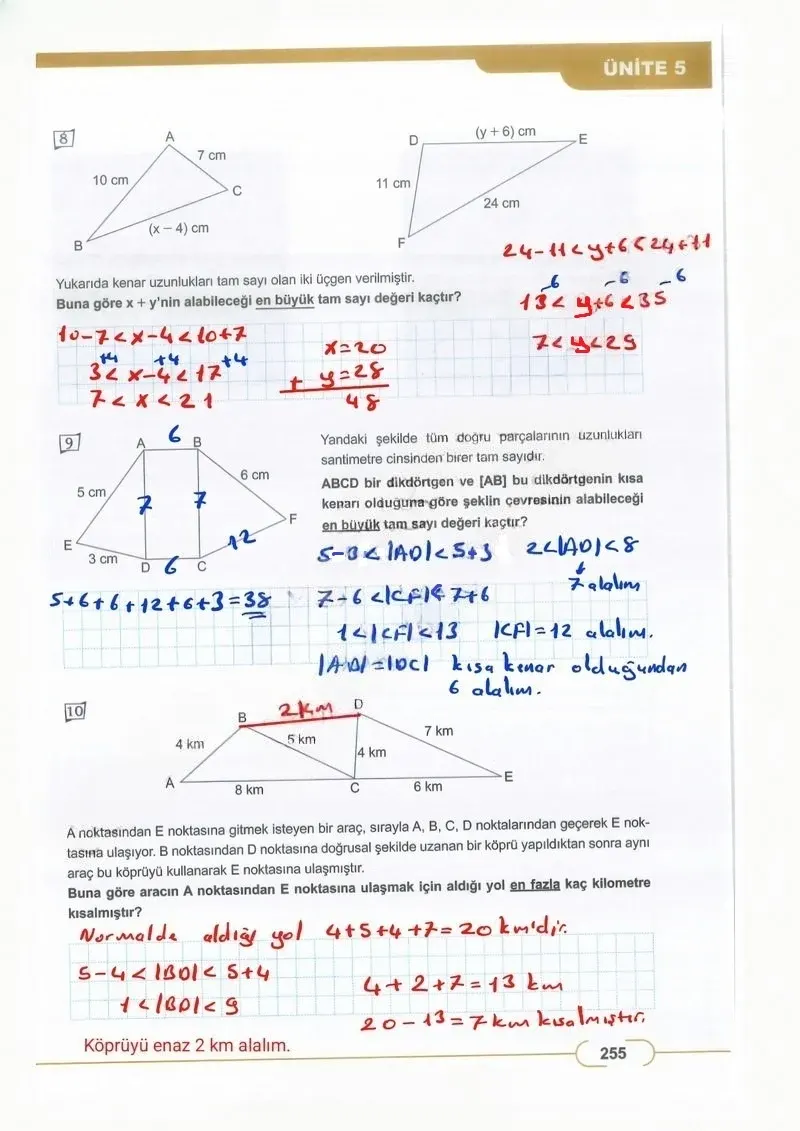 ÜNİTE 5
8
A
7 cm
10 cm
C
(x – 4) cm
B
D
(y + 6) cm
E
11 cm
24 cm
F
24-11<y+6<24+11
Yukarıda kenar uzunlukları tam sayı olan iki üçgen verilmiştir.
Buna göre x + y'nin alabileceği en büyük tam sayı değeri kaçtır?
-6 -6 -6
13< y+6<35
7<y<29
10-7<x-4<10+7
+4 +4 +4
3<x-4<17
7<x<21
x=20
+ y=28
48
9
A 6 B
5 cm
6 cm
7 7
E
F
3 cm
D 6 C
12
5+6+6+12+6+3=38
Yandaki şekilde tüm doğru parçalarının uzunlukları
santimetre cinsinden birer tam sayıdır.
ABCD bir dikdörtgen ve [AB] bu dikdörtgenin kısa
kenarı olduğuna göre şeklin çevresinin alabileceği
en büyük tam sayı değeri kaçtır?
5-3<|AD|<5+3 2<|AD|<8
7 alalım
7-6<|CF|<7+6
1<|CF|<13 |CF|=12 alalım.
|AB|=|DC| kısa kenar olduğundan
6 alalım.
10
B 2km D
4 km
5 km
4 km
7 km
A
8 km
C
6 km
E
A noktasından E noktasına gitmek isteyen bir araç, sırayla A, B, C, D noktalarından geçerek E nok-
tasına ulaşıyor. B noktasından D noktasına doğrusal şekilde uzanan bir köprü yapıldıktan sonra aynı
araç bu köprüyü kullanarak E noktasına ulaşmıştır.
Buna göre aracın A noktasından E noktasına ulaşmak için aldığı yol en fazla kaç kilometre
kısalmıştır?
Normalde aldığı yol 4+5+4+7=20 km'dir.
5-4<|BD|<5+4
1<|BD|<9
4+2+7=13 km
20-13=7km kısalmıştır.
Köprüyü enaz 2 km alalım.
255